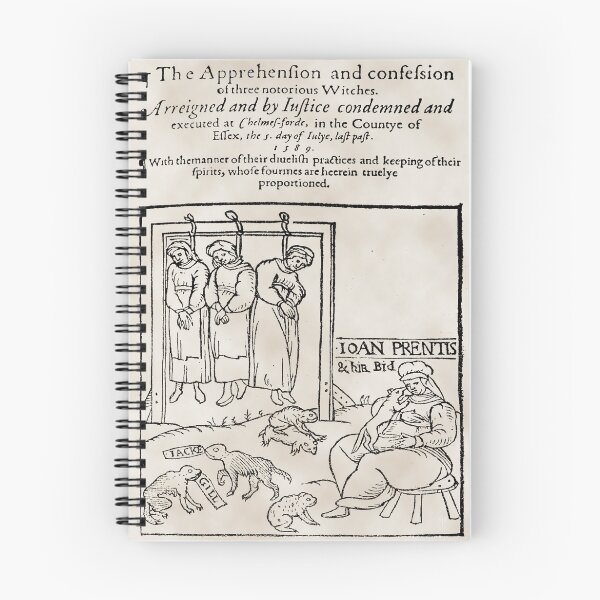 The Apprehenſion and confeſsion
of three notorious Witches.
Arreigned and by Iuſtice condemned and
executed at Chelmeſ-forde, in the Countye of
Eſſex, the 5. day of Iulye, laſt paſt.
1589.
With themanner of their diueliſh practices and keeping of their
ſpirits, whoſe fourmes are heerein truelye
proportioned.
IOAN PRENTIS
& hir Bid
IACKE
GILL